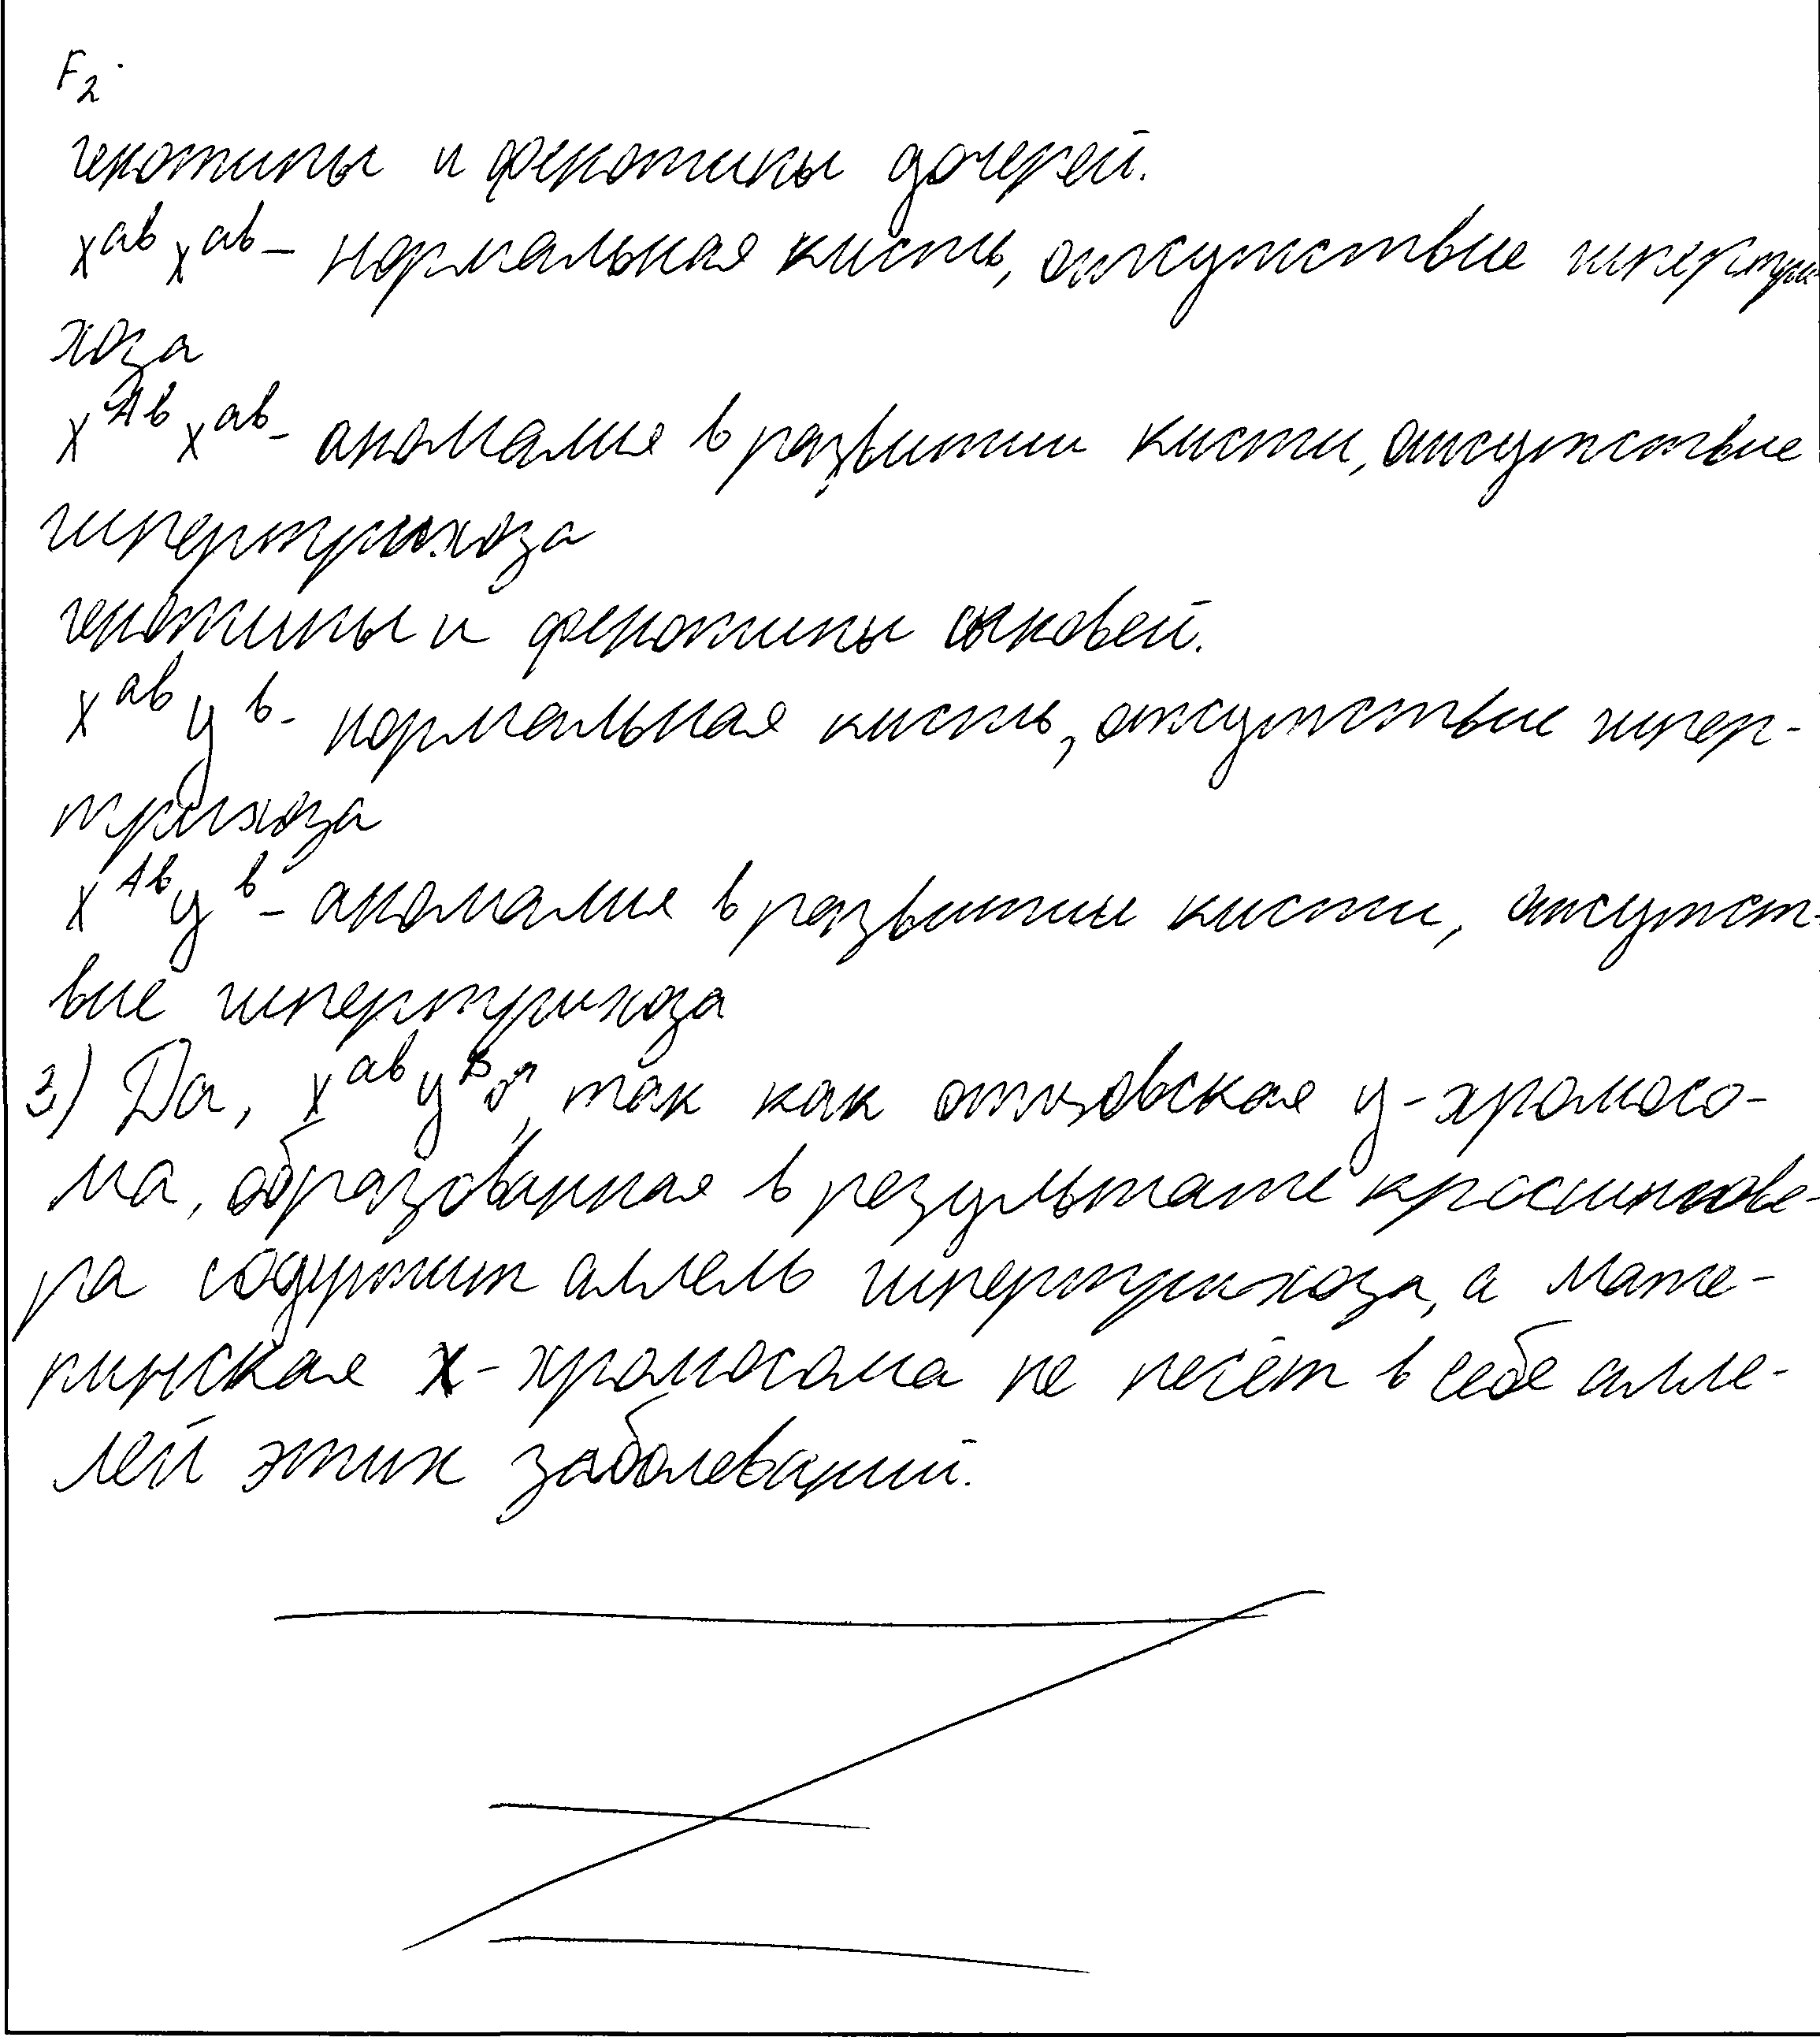 F₂.
генотипы и фенотипы дочерей.
xᵃᵇ xᵃᵇ – нормальная кисть, отсутствие гипертри-
хоза
xᴬᵇ xᵃᵇ - аномалия в развитии кисти, отсутствие
гипертрихоза
генотипы и фенотипы сыновей.
xᵃᵇ yᵇ - нормальная кисть, отсутствие гипер-
трихоза
xᴬᵇ yᵇ - аномалия в развитии кисти, отсутст-
вие гипертрихоза
3) Да, xᵃᵇ yᴮ ♂, так как отцовская y-хромосо-
ма, образованная в результате кроссингове-
ра содержит аллель гипертрихоза, а мате-
ринская x-хромосома не несёт в себе алле-
лей этих заболеваний.